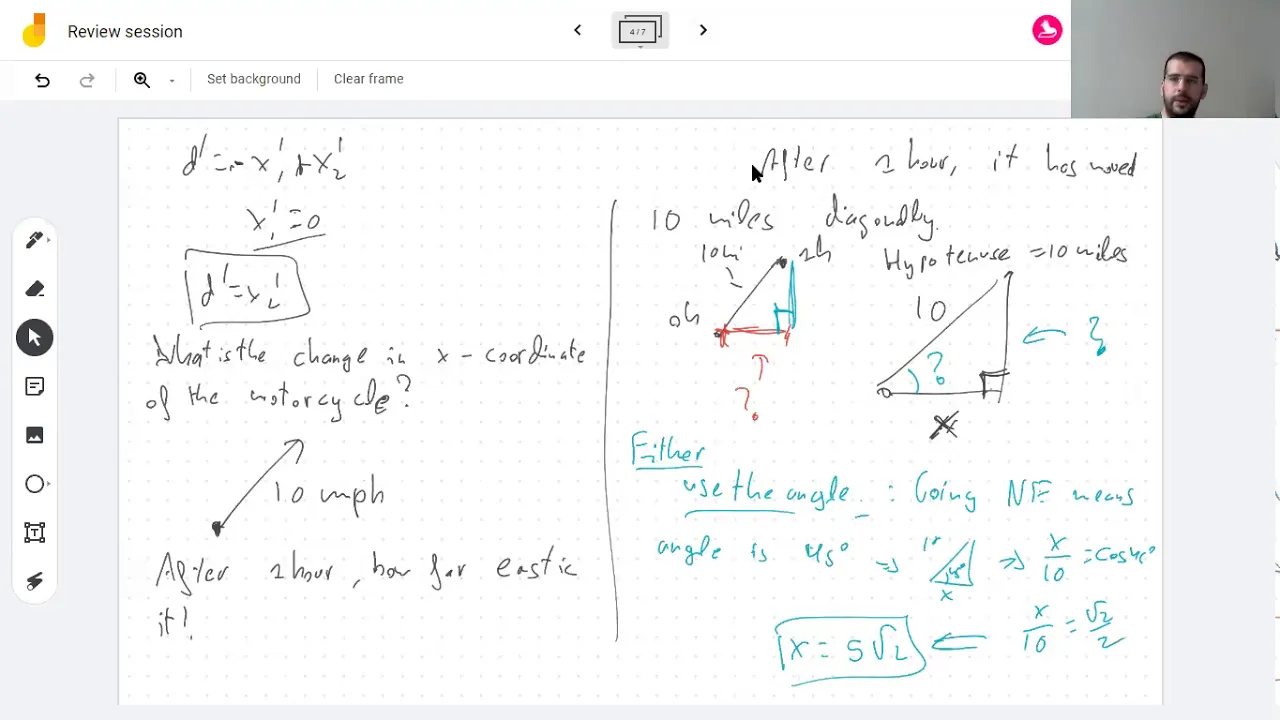 Review session
4/7
Set background
Clear frame
d' = - x₁' + x₂'
x₁' = 0
d' = x₂'
What is the change in x - coordinate
of the motorcycle?
10 mph
After 1 hour, how far east is
it?
After 1 hour, it has moved
10 miles diagonally.
10 mi
1h
0h
?
Hypotenuse = 10 miles
10
?
?
x
Either
use the angle : Going NE means
angle is 45° ⇒
10
45°
x
⇒ x/10 = cos 45°
x/10 = √2/2
x = 5√2